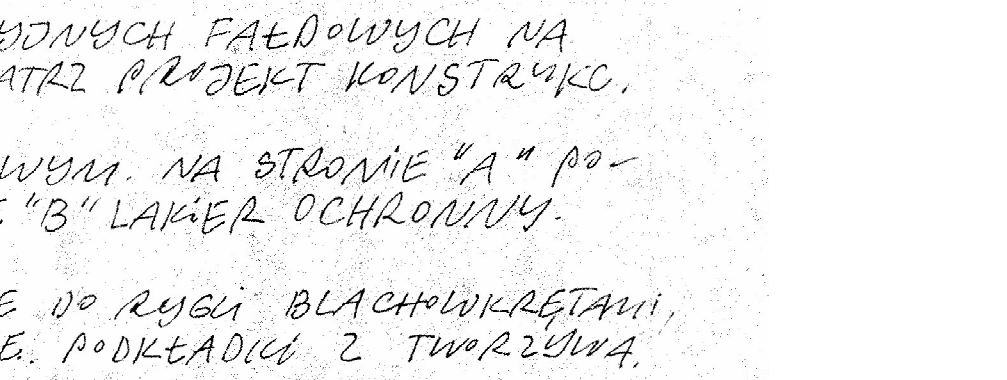 YJNYCH FAŁDOWYCH NA
ATRZ PROJEKT KONSTRUKC.
WYM. NA STRONIE "A" PO-
"B" LAKIER OCHRONNY.
E DO RYGLI BLACHOWKRĘTAMI,
E. PODKŁADKI Z TWORZYWA.